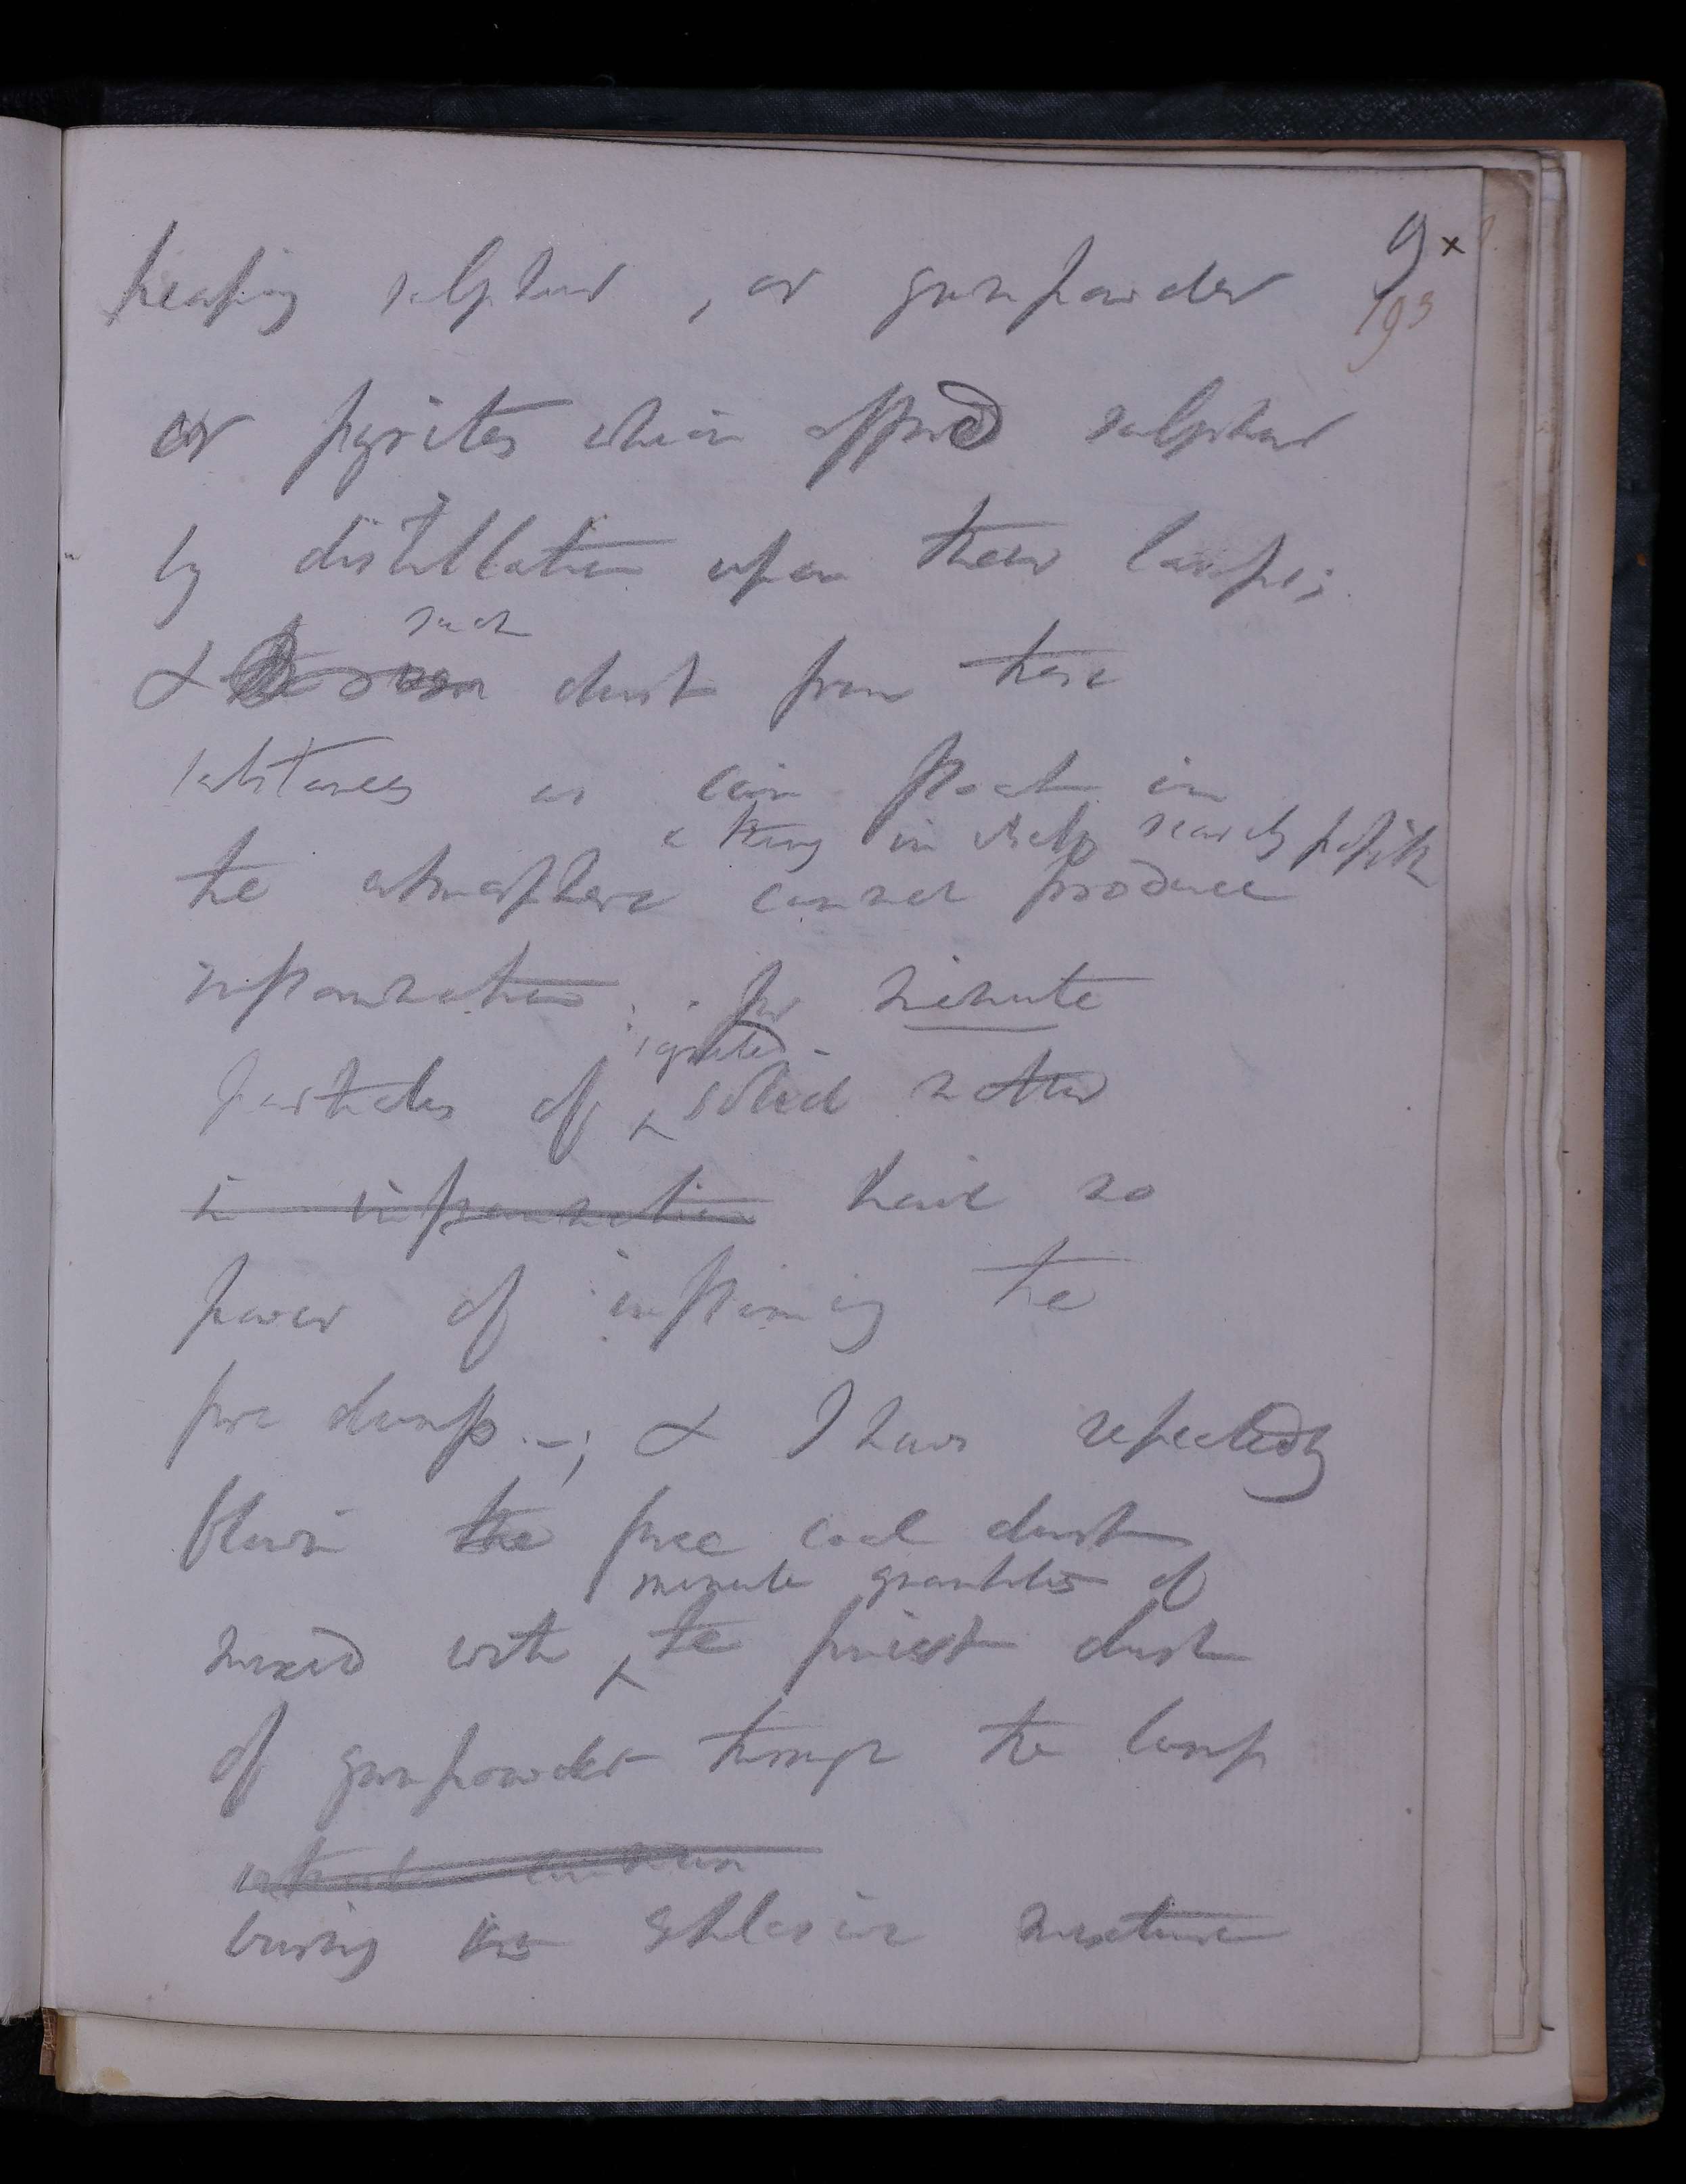 9 x
193
heaping sulphur, or gunpowder
or pyrites which afford sulphur
by distillation upon their lamps;
such
& dust from these
substances as can float in
a thing in itself scarcely possible
the atmosphere cannot produce
inflammation: - for minute
ignited
particles of ^ solid matter
in inflammation have no
power of inflaming the
fire damp -; & I have repeatedly
blown the fine coal dust
minute quantities of
mixed with ^ the finest dust
of gunpowder through the lamp
burning in explosive mixture